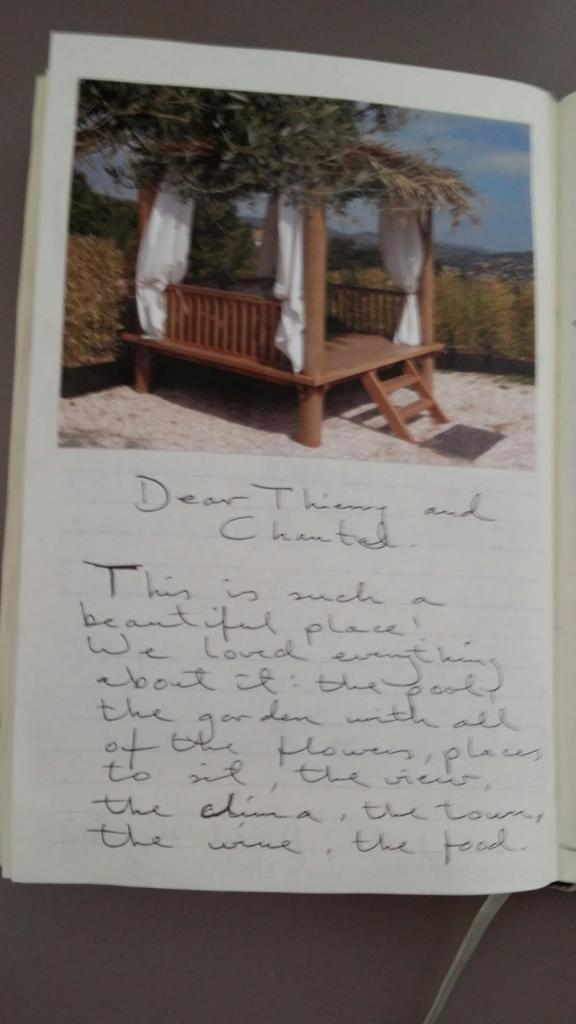 Dear Thierry and
Chantal.
This is such a
beautiful place!
We loved everything
about it: the pool,
the garden with all
of the flowers, places
to sit, the view,
the clima, the town,
the wine, the food.